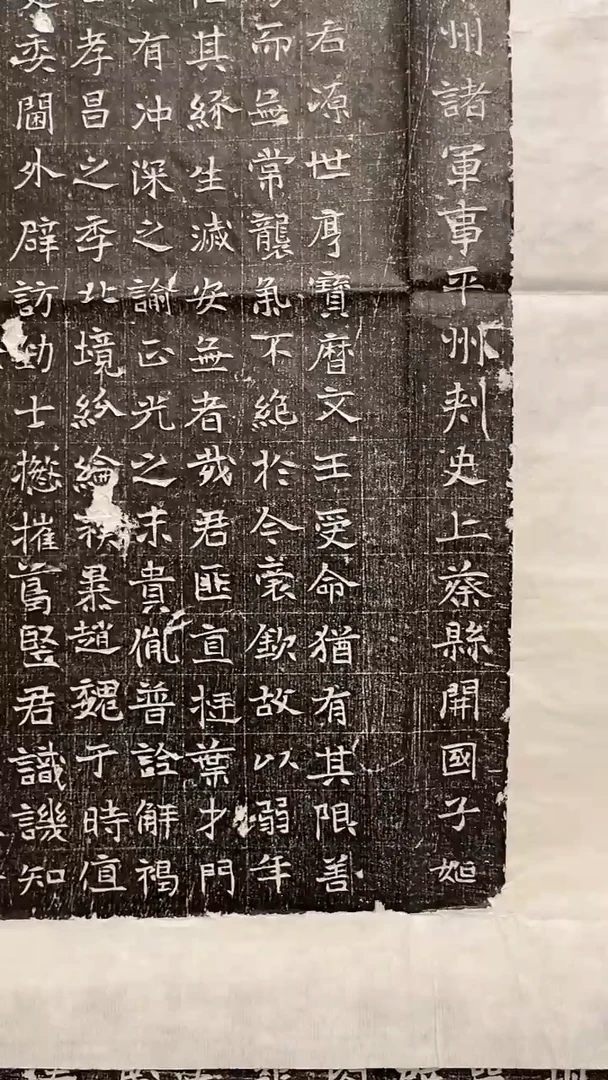 州諸軍事平州刾史上蔡縣開國子
君源世厚寶曆文王受命猶有其限善
而無常襲氣不絶於今裒欽故以弱年
其緣生滅安無者哉君匪直挺葉才門
有沖深之諭正光之末貴胤普詮解褐
孝昌之季北境紛綸秩暴趙魏于時值
委閫外辟訪勁士摧葛竪君識譏知